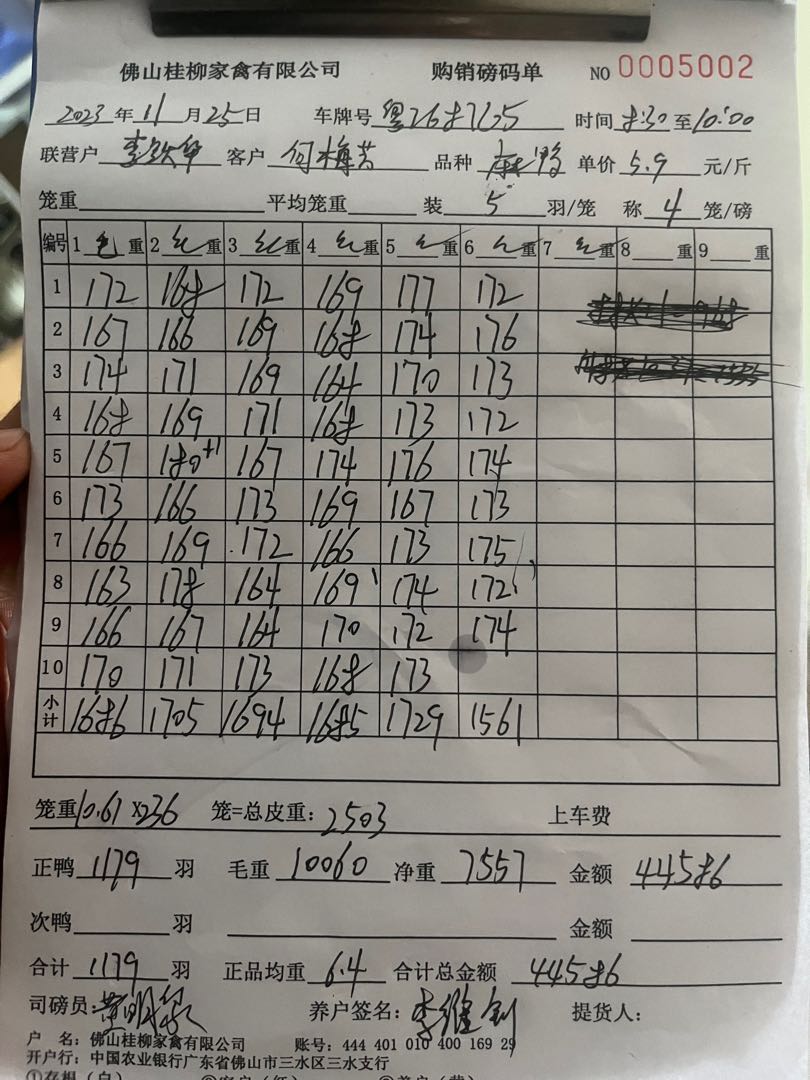 佛山桂柳家禽有限公司 购销磅码单 NO 0005002
2023 年 11 月 25 日 车牌号 粤26875 时间 8:30 至 10:00
联营户 客户 何梅芳 品种 单价 5.9 元/斤
笼重 平均笼重 装 5 羽/笼 称 4 笼/磅
编号 1 毛 重 2 毛 重 3 毛 重 4 毛 重 5 重 6 重 7 毛 重 8 重 9 重
1 172 168 172 169 177 172
2 167 166 169 168 174 176
3 174 171 169 164 170 173
4 168 169 171 168 173 172
5 167 180+1 167 174 176 174
6 173 166 173 169 167 173
7 166 169 172 166 173 175
8 163 178 164 169 174 172
9 166 167 164 170 172 174
10 170 171 173 168 173
小计 1686 1705 1694 1685 1729 1561
笼重 10.61 X236 笼=总皮重: 2503 上车费
正鸭 1179 羽 毛重 10060 净重 7557 金额 44586
次鸭 羽 金额
合计 1179 羽 正品均重 6.4 合计总金额 44586
司磅员: 养户签名: 李继钊 提货人:
户 名: 佛山桂柳家禽有限公司 账号: 444 401 010 400 169 29
开户行: 中国农业银行广东省佛山市三水区三水支行
①存根（白） ②客户（红） ③养户（黄）